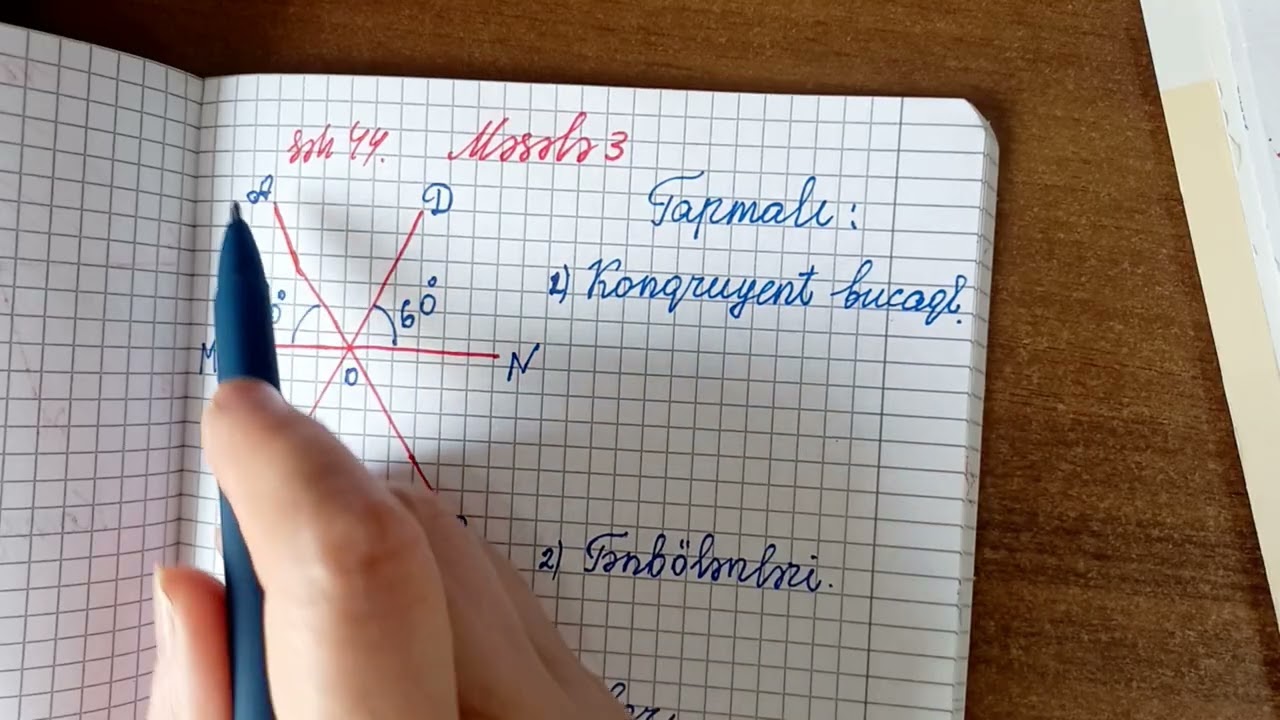 səh 44. Məsələ 3
A D
Tapmalı:
1) Konqruyent bucaql.
60°
M N
O
2) Tənbölənləri.